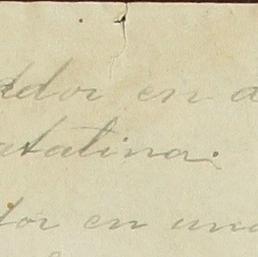 ddor en d
atalina.
dor en una